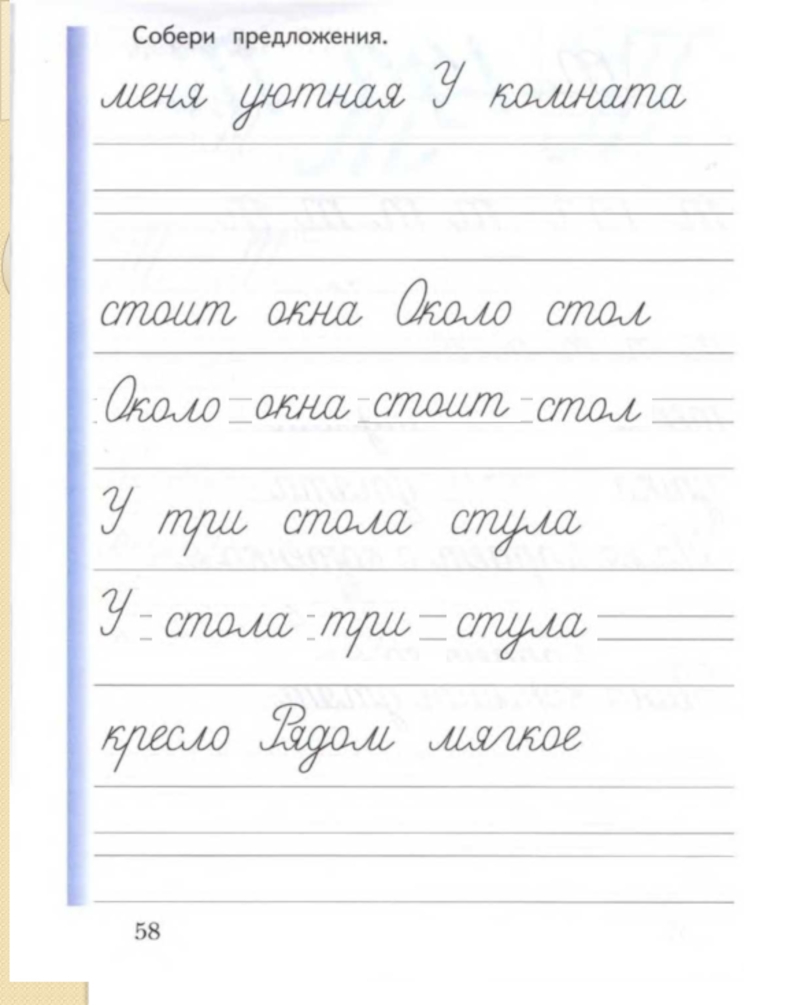 Собери предложения.
меня уютная У комната
стоит окна Около стол
Около окна стоит стол
У три стола стула
У стола три стула
кресло Рядом мягкое
58